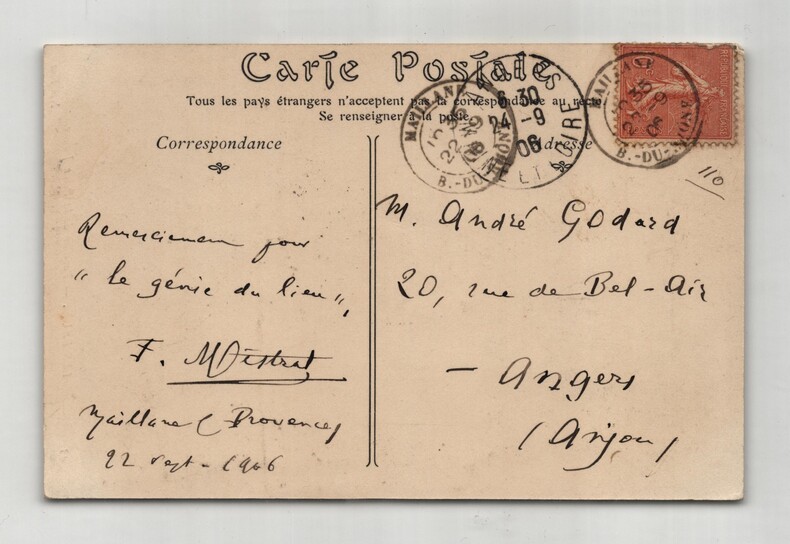 Carte Postale
Tous les pays étrangers n'acceptent pas la correspondance au recto
Se renseigner à la poste
Correspondance
Adresse
MAILLANE
22 9 06
B.-DU-RHONE
ANGERS
6 30
24 -9
06
ET LOIRE
MAILLANE
22 9 06
B.-DU-RHONE
110
Remerciement pour
"le génie du lieu",
F. Mistral
Maillane (Provence)
22 sept - 1906
M. André Godard
20, rue de Bel-Air
- Angers
(Anjou)